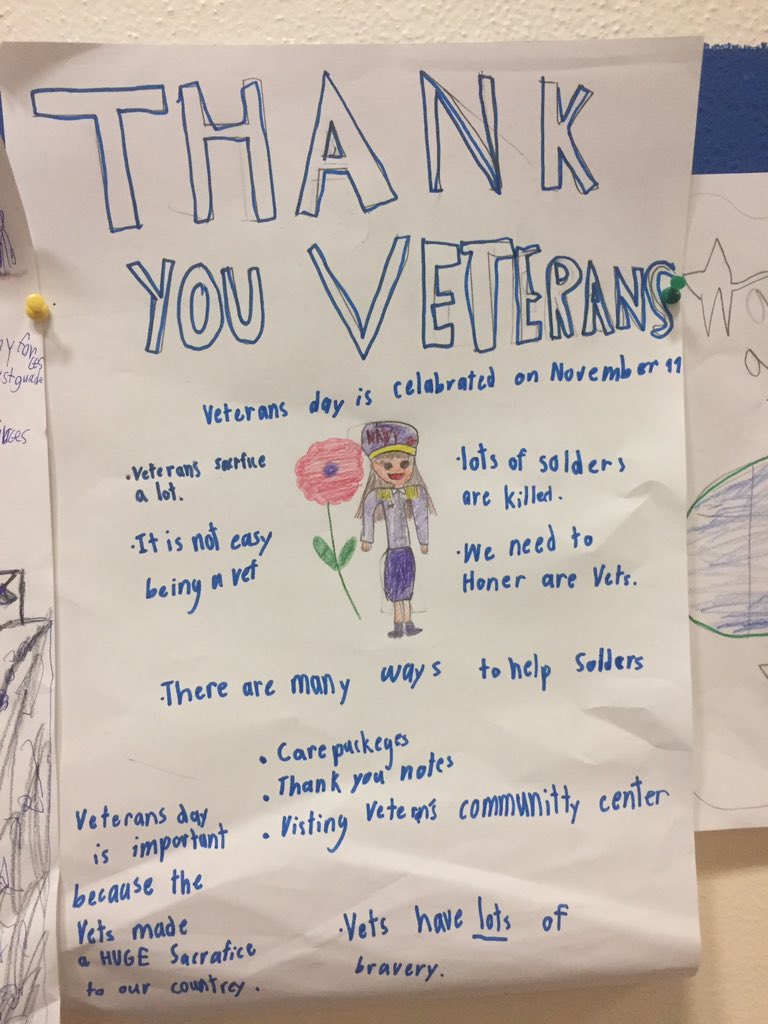 THANK
YOU VETERANS
Veterans day is celabrated on November 11
NAVY
• Veterans sacrfice
a lot.
• It is not easy
being a vet
• lots of solders
are killed.
• We need to
Honer are Vets.
• There are many ways to help Solders
• Care puckeges
• Thank you notes
• Visting Veteran's communitty center
Veterans day
is important
because the
Vets made
a HUGE Sacrafice
to our countrey.
• Vets have lots of
bravery.